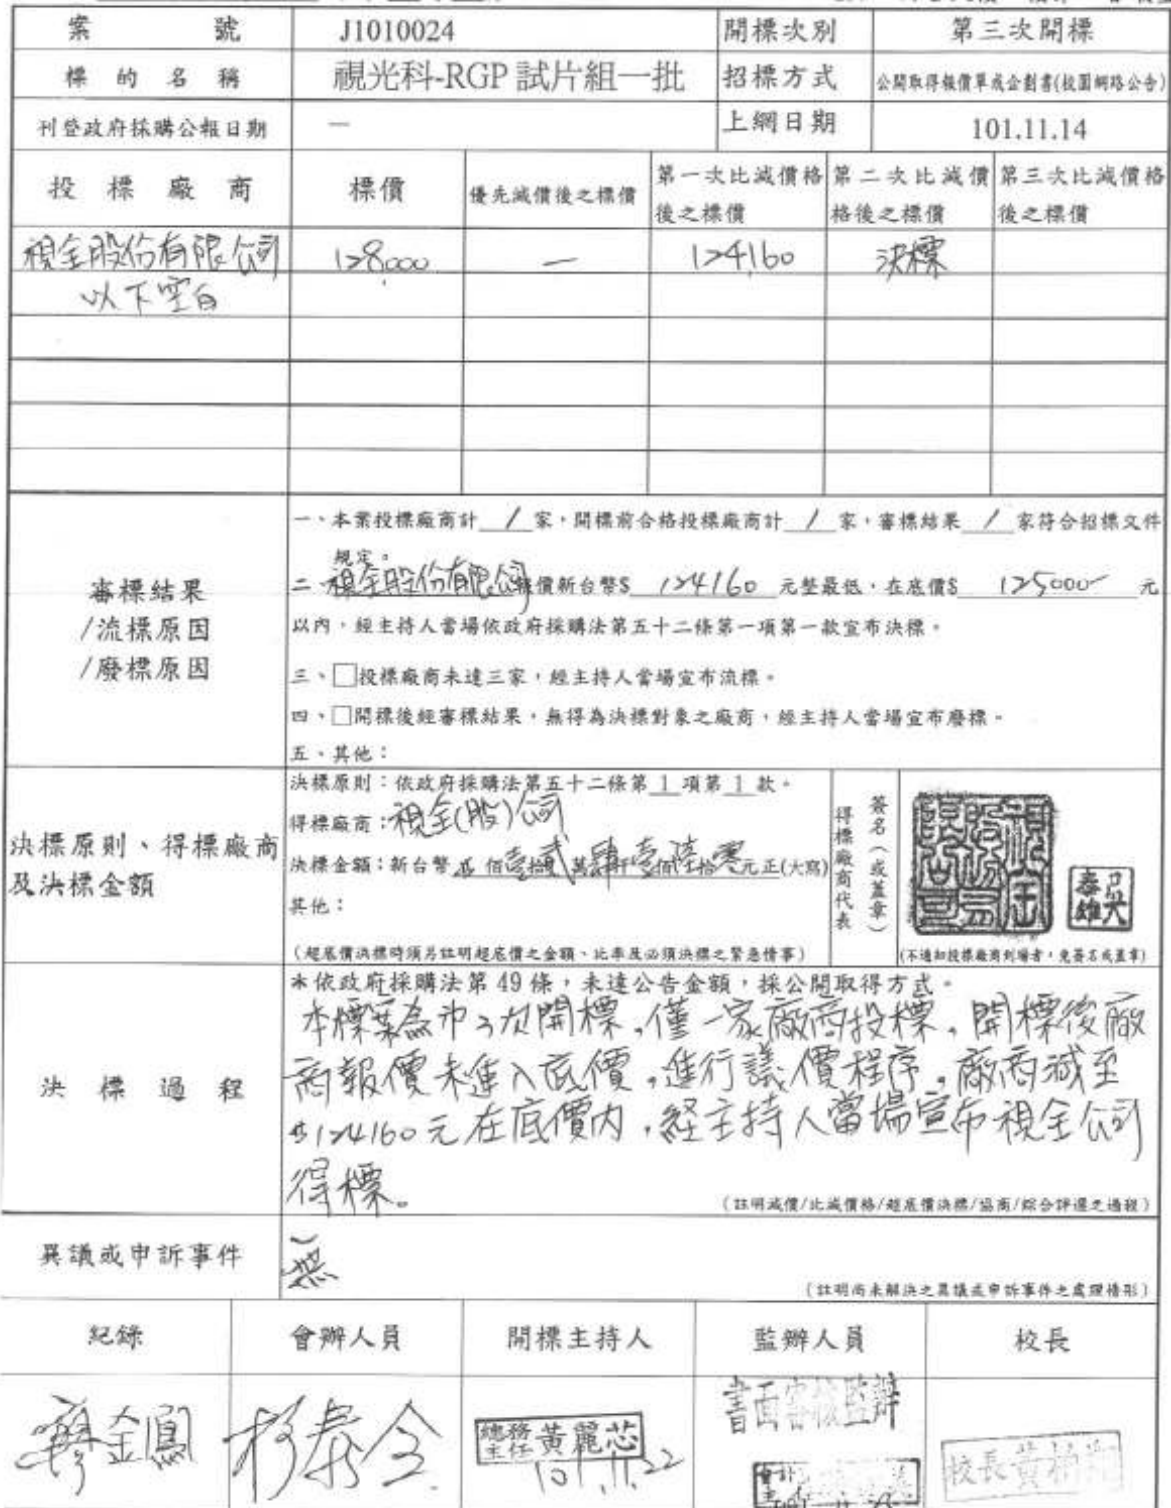 案號 J1010024 開標次別 第三次開標
標的名稱 視光科-RGP 試片組一批 招標方式 公開取得報價單或企劃書(校園網路公告)
刊登政府採購公報日期 — 上網日期 101.11.14
投標廠商 標價 優先減價後之標價 第一次比減價格後之標價 第二次比減價格後之標價 第三次比減價格後之標價
視全股份有限公司 128000 — 124160 決標
以下空白
審標結果
/流標原因
/廢標原因
一、本案投標廠商計 1 家，開標前合格投標廠商計 1 家，審標結果 1 家符合招標文件
規定。
二、視全股份有限公司報價新台幣$ 124160 元整最低，在底價$ 125000 元
以內，經主持人當場依政府採購法第五十二條第一項第一款宣布決標。
三、□投標廠商未達三家，經主持人當場宣布流標。
四、□開標後經審標結果，無得為決標對象之廠商，經主持人當場宣布廢標。
五、其他：
決標原則、得標廠商
及決標金額
決標原則：依政府採購法第五十二條第 1 項第 1 款。
得標廠商：視全(股)公司
決標金額：新台幣 佰壹拾貳萬肆仟壹佰陸拾零元正(大寫)
其他：
(超底價決標時須另註明超底價之金額、比率及必須決標之緊急情事)
得標廠商代表
簽名（或蓋章）
吳泰雄
(不通知投標廠商到場者，免簽名或蓋章)
決標過程
*依政府採購法第 49 條，未達公告金額，採公開取得方式。
本標案為第3次開標，僅一家廠商投標，開標後廠
商報價未進入底價，進行議價程序，廠商減至
$124160元在底價內，經主持人當場宣布視全公司
得標。
(註明減價/比減價格/超底價決標/協商/綜合評選之過程)
異議或申訴事件
無
(註明尚未解決之異議或申訴事件之處理情形)
紀錄 會辦人員 開標主持人 監辦人員 校長
書面審核監辦
總務主任 黃麗芯
101.11.22
校長黃柏翔